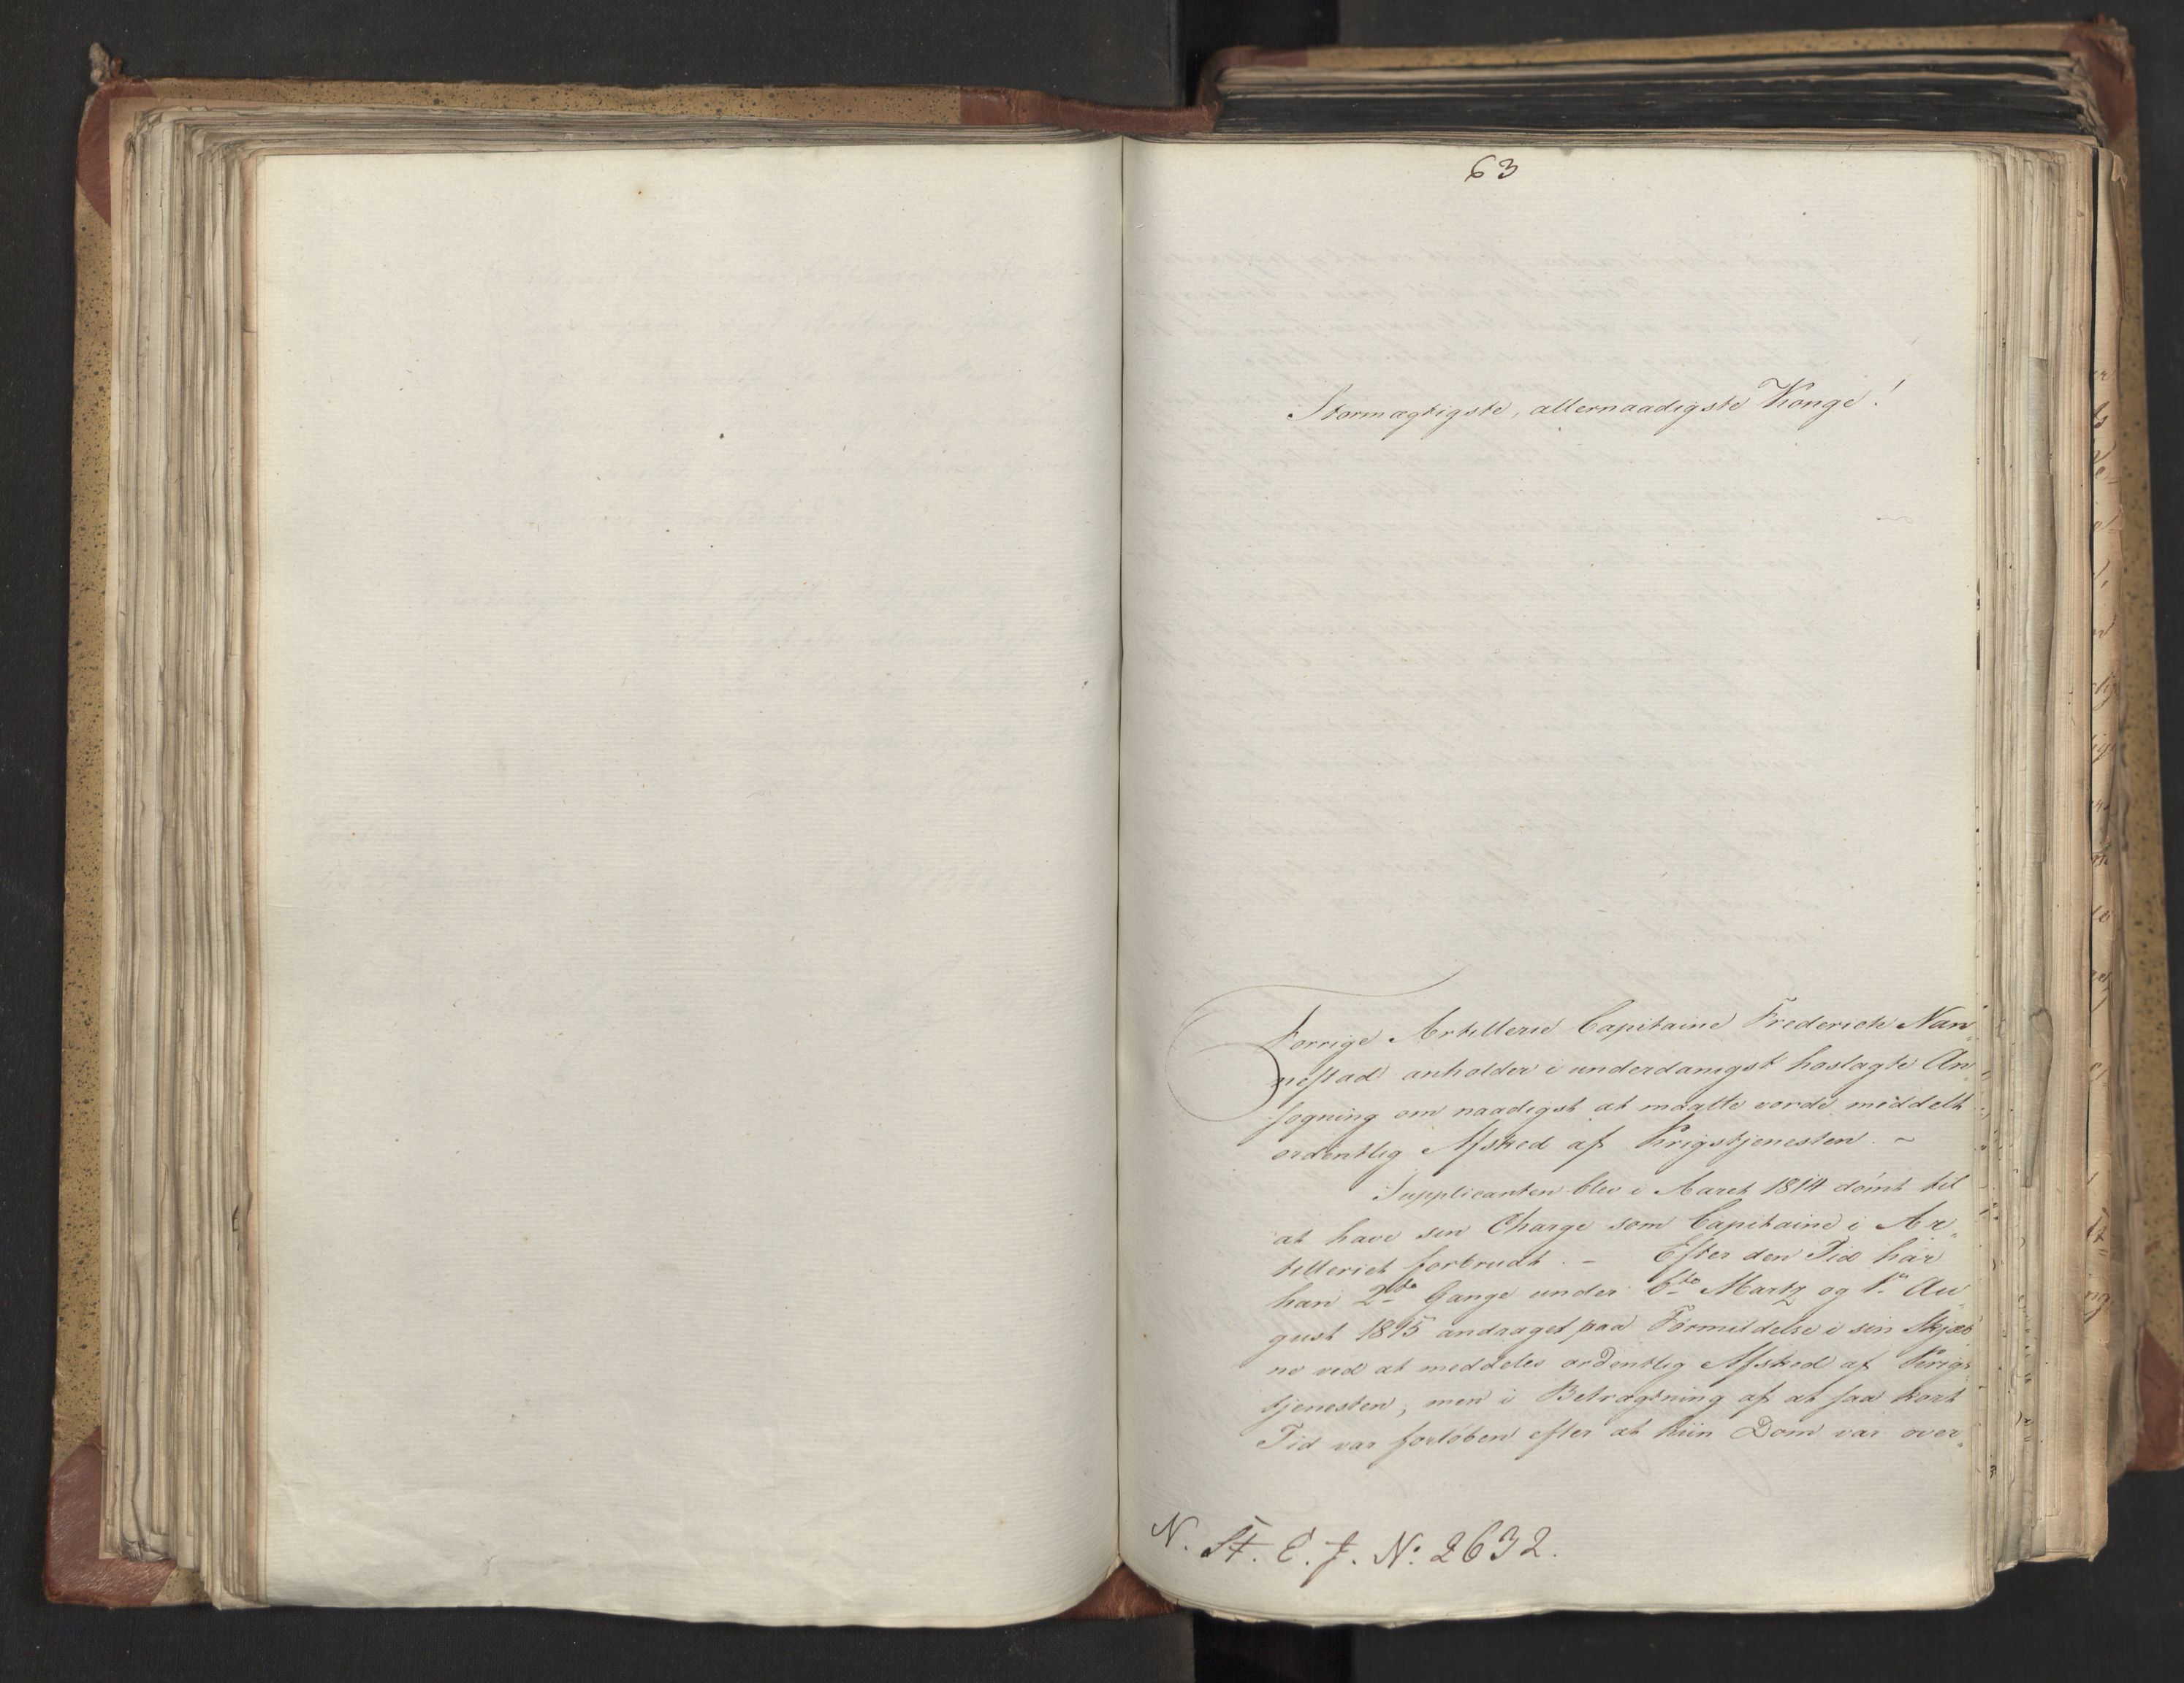 63
Stormægtigste, allernaadigste Konge!
Forrige Artillerie Capitaine Frederich Nan„
nestad anholder i underdanigst hoslagte An„
søgning om naadigst at maatte vorde meddelt
ordentlig Afsked af Krigstjenesten. ~
Supplicanten blev i Aaret 1814 dömt til
at have sin Charge som Capitaine i Ar„
tilleriet forbrudt. – Efter den Tid har
han 2de Gange under 6te Martz og 1n Au„
gust 1815 andraget paa Formildelse i sin Skjæb
ne ved at meddeles ordentlig Afsked af Krigs
tjenesten, men i Betragtning af at saa kort
Tid var forløben efter at hiin Dom var over„
N. St. E. J. No: 2632.